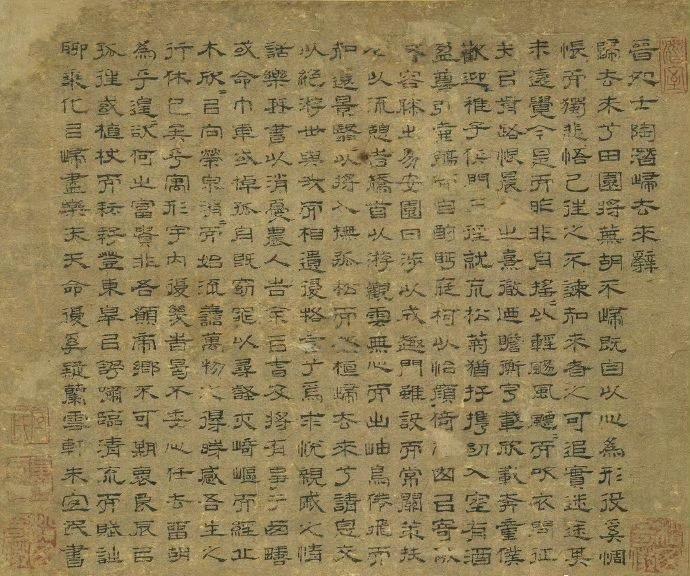 晉処士陶潛歸去來辭
歸去來兮田園將蕪胡不歸既自以心為形役奚惆
悵而獨悲悟已往之不諫知來者之可追實迷途其
未遠覺今是而昨非舟搖以輕颺風飄而吹衣問征
夫以前路恨晨之熹微迺瞻衡宇載欣載奔童僕
歡迎稚子候門三徑就荒松菊猶存攜幼入室有酒
盈尊引壺觴而自酌眄庭柯以怡顏倚囪以寄傲
容膝之易安園日涉以成趣門雖設而常關策扶
以流憩時矯首以游觀雲無心而出岫鳥倦飛而
知還景翳以將入撫孤松而盤桓歸去來兮請息交
以絕游世與我而相遺復駕言兮焉求悅親戚之情
話樂琴書以消憂農人告余以春及將有事于西疇
或命巾車或棹孤舟既窈窕以尋壑亦崎嶇而經丘
木欣以向榮泉涓而始流善萬物之得時感吾生之
行休已矣乎寓形宇內復幾時曷不委心任去留胡
為乎遑欲何之富貴非吾願帝鄉不可期懷良辰以
孤往或植杖而耘耔登東皋以舒嘯臨清流而賦詩
聊乘化以歸盡樂夫天命復奚疑蘭雪軒朱民書